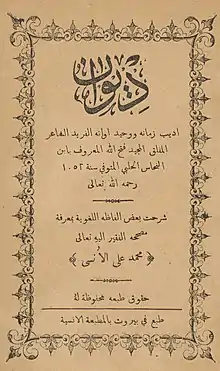 ديوان
اديب زمانه ووحيد اوانه الفريد الشاعر
المفلق المجيد فتح الله المعروف بابن
النحاس الحلبي المتوفى سنة ١٠٥٢
رحمه الله تعالى
شرحت بعض الفاظه اللغوية بمعرفة
مصححه الفقير اليه تعالى
﴿ محمد علي الانسي ﴾
حقوق طبعه محفوظة له
طبع في بيروت بالمطبعة الانسية